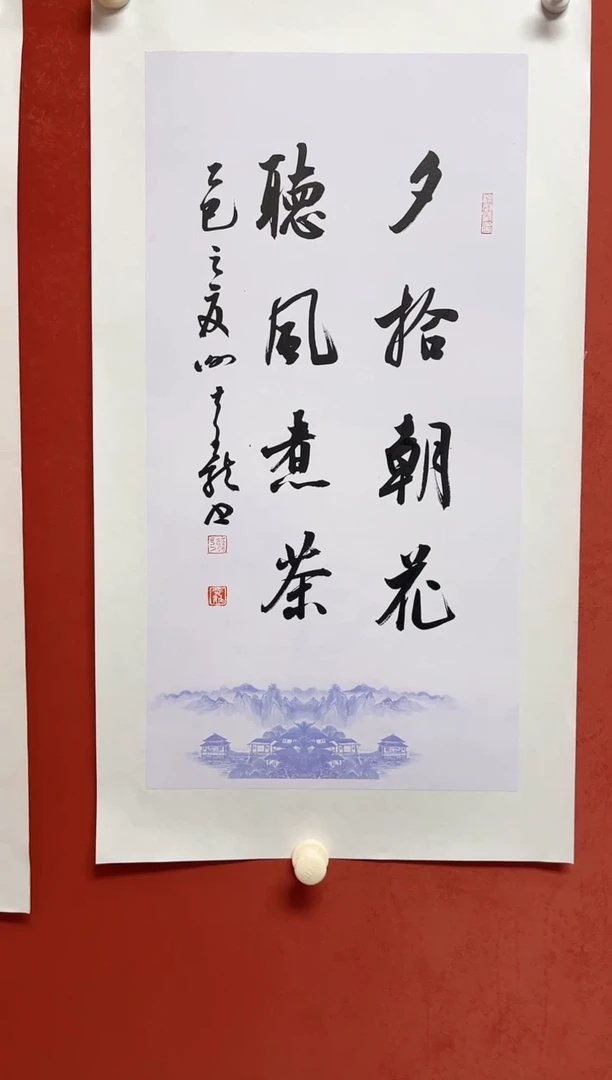 夕拾朝花
聽風煮茶
乙巳之夏